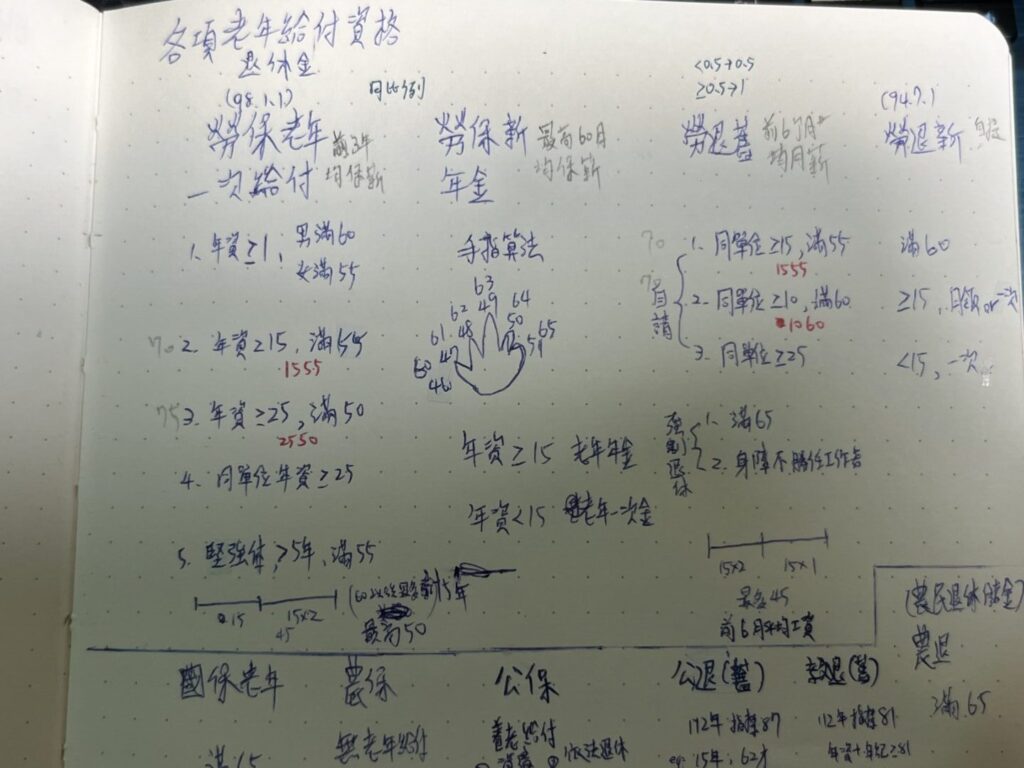 各項老年給付資格
退休金
(98.1.1)
同比例
<0.5→0.5
≥0.5→1
(94.7.1)
勞保老年
一次給付
前3年
均保薪
勞保新
年金
最高60月
均保薪
勞退舊
前6個月
均月薪
勞退新
1. 年資≥1,
男滿60
女滿55
70 2. 年資≥15, 滿55
1555
75 3. 年資≥25, 滿50
2550
4. 同單位年資≥25
5. 堅強体, >5年, 滿55
15×2
45
最高50
手指算法
60 61 62 63 64 65
46 47 48 49 50
年資≥15 老年年金
年資<15 老年一次金
70
自請
1. 同單位≥15, 滿55
1555
2. 同單位≥10, 滿60
1060
3. 同單位≥25
強制退休
1. 滿65
2. 身障不勝任工作者
15×2 15×1
最多45
前6月平均工資
滿60
≥15, 月領or一次
<15, 一次
(農民退休儲金)
農退
滿65
國保老年
滿65
農保
無老年給付
公保
養老給付
依法退休
公退(舊)
112年 指標87
eg. 15年, 62才
教退(舊)
112年 指標81
年資+年紀≥81